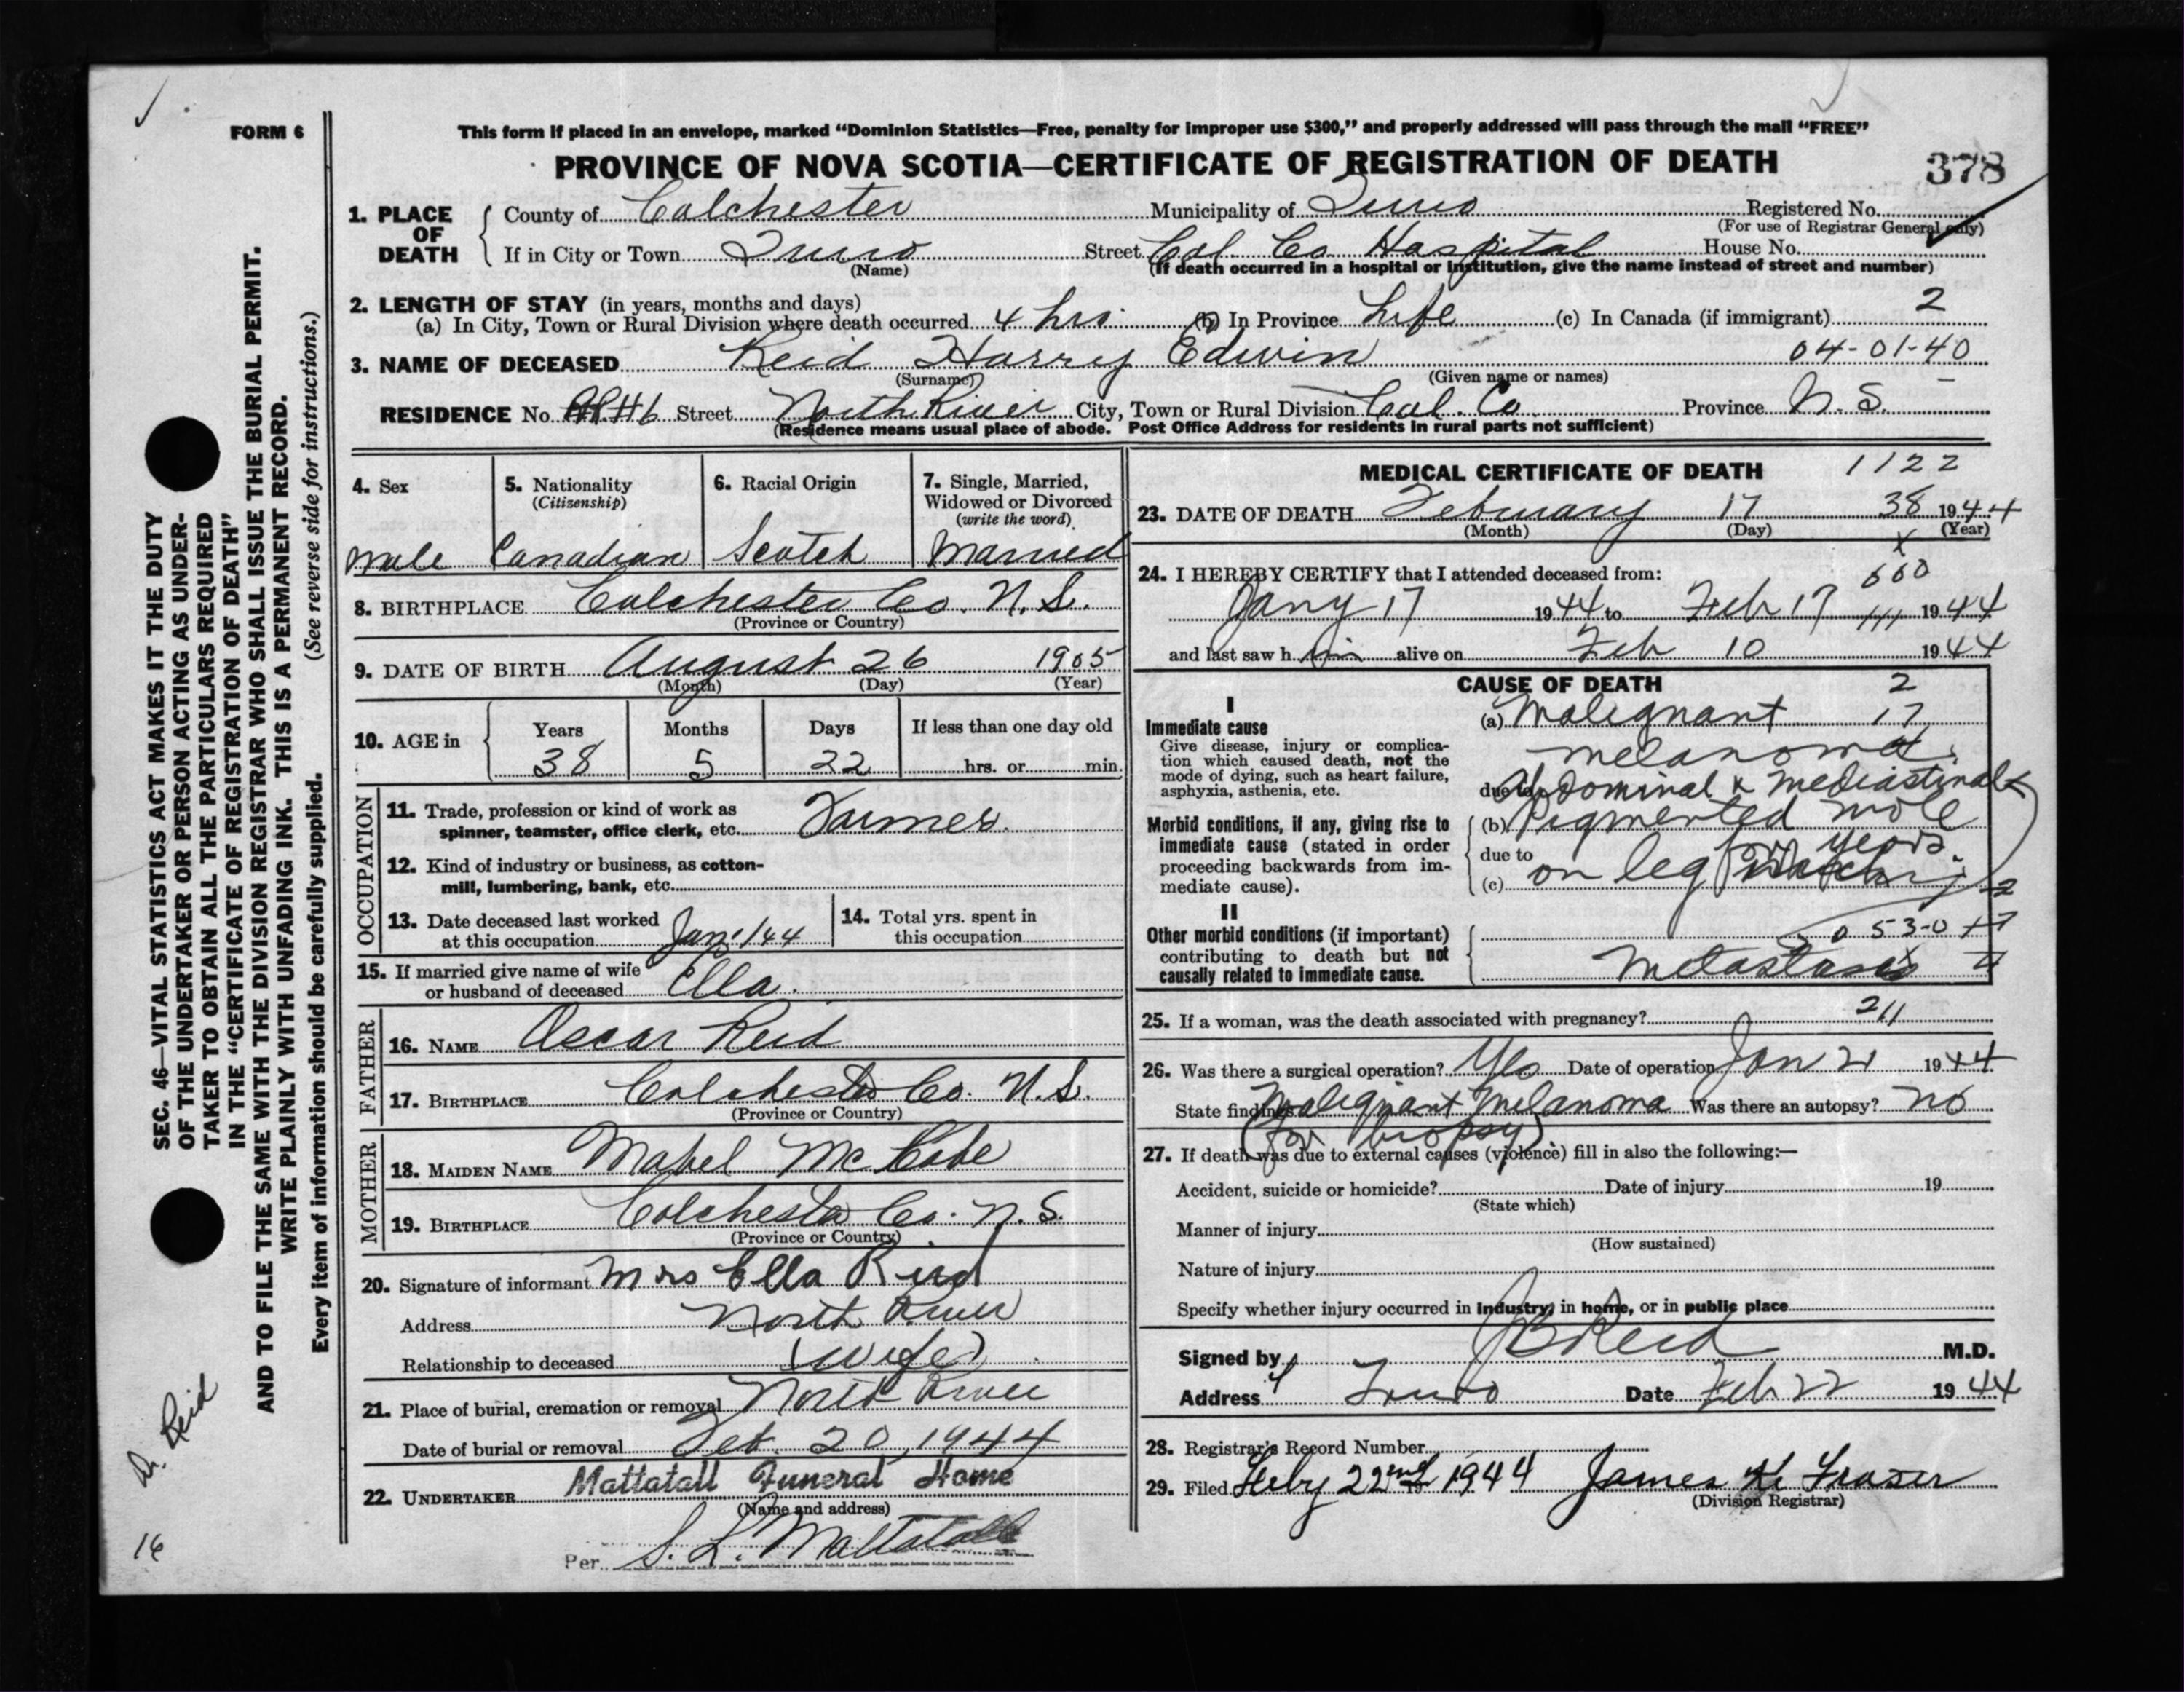 FORM 6
This form if placed in an envelope, marked “Dominion Statistics—Free, penalty for improper use $300,” and properly addressed will pass through the mail “FREE”
PROVINCE OF NOVA SCOTIA—CERTIFICATE OF REGISTRATION OF DEATH
378
1. PLACE OF DEATH
County of Colchester Municipality of Truro Registered No.
(For use of Registrar General only)
If in City or Town Truro Street Col. Co Hospital House No.
(Name) (If death occurred in a hospital or institution, give the name instead of street and number)
2. LENGTH OF STAY (in years, months and days)
(a) In City, Town or Rural Division where death occurred 4 hrs. (b) In Province Life (c) In Canada (if immigrant) 2
3. NAME OF DECEASED Reid Harry Edwin 04-01-40
(Surname) (Given name or names)
RESIDENCE No. Street North River City, Town or Rural Division Col. Co. Province N. S.
(Residence means usual place of abode. Post Office Address for residents in rural parts not sufficient)
4. Sex
male
5. Nationality
(Citizenship)
Canadian
6. Racial Origin
Scotch
7. Single, Married,
Widowed or Divorced
(write the word)
Married
8. BIRTHPLACE Colchester Co. N.S.
(Province or Country)
9. DATE OF BIRTH August 26 1905
(Month) (Day) (Year)
10. AGE in
Years Months Days If less than one day old
38 5 22 hrs. or min.
OCCUPATION
11. Trade, profession or kind of work as
spinner, teamster, office clerk, etc. Farmer.
12. Kind of industry or business, as cotton-
mill, lumbering, bank, etc.
13. Date deceased last worked
at this occupation Jan. /44
14. Total yrs. spent in
this occupation
15. If married give name of wife
or husband of deceased Ella.
FATHER
16. NAME Oscar Reid
17. BIRTHPLACE Colchester Co. N.S.
(Province or Country)
MOTHER
18. MAIDEN NAME Mabel McCabe
19. BIRTHPLACE Colchester Co. N.S.
(Province or Country)
20. Signature of informant Mrs Ella Reid
Address North River
Relationship to deceased (wife)
21. Place of burial, cremation or removal North River
Date of burial or removal Feb. 20, 1944
22. UNDERTAKER Mattatall Funeral Home
(Name and address)
Per S. L. Mattatall
MEDICAL CERTIFICATE OF DEATH 1122
23. DATE OF DEATH February 17 38 1944
(Month) (Day) (Year)
x
24. I HEREBY CERTIFY that I attended deceased from: 660
Jany 17 1944 to Feb 17 111 1944
and last saw him alive on Feb 10 1944
CAUSE OF DEATH 2
I
Immediate cause
Give disease, injury or complica-
tion which caused death, not the
mode of dying, such as heart failure,
asphyxia, asthenia, etc.
(a) Malignant 17
melanoma
due to Abdominal & Mediastinal
Morbid conditions, if any, giving rise to
immediate cause (stated in order
proceeding backwards from im-
mediate cause).
(b) Pigmented mole
due to years
(c) on leg for
II
Other morbid conditions (if important)
contributing to death but not
causally related to immediate cause.
053-0
Metastases
25. If a woman, was the death associated with pregnancy? 211
26. Was there a surgical operation? Yes Date of operation Jan 21 1944
State findings Malignant Melanoma Was there an autopsy? no
(for biopsy)
27. If death was due to external causes (violence) fill in also the following:—
Accident, suicide or homicide? Date of injury 19
(State which)
Manner of injury
(How sustained)
Nature of injury
Specify whether injury occurred in industry, in home, or in public place
Signed by JB Reid M.D.
Address Truro Date Feb 22 1944
28. Registrar's Record Number
29. Filed Feby 22nd 1944 James H Fraser
(Division Registrar)
SEC. 46—VITAL STATISTICS ACT MAKES IT THE DUTY
OF THE UNDERTAKER OR PERSON ACTING AS UNDER-
TAKER TO OBTAIN ALL THE PARTICULARS REQUIRED
IN THE “CERTIFICATE OF REGISTRATION OF DEATH”
AND TO FILE THE SAME WITH THE DIVISION REGISTRAR WHO SHALL ISSUE THE BURIAL PERMIT.
WRITE PLAINLY WITH UNFADING INK. THIS IS A PERMANENT RECORD.
Every item of information should be carefully supplied. (See reverse side for instructions.)
Dr. Reid
16